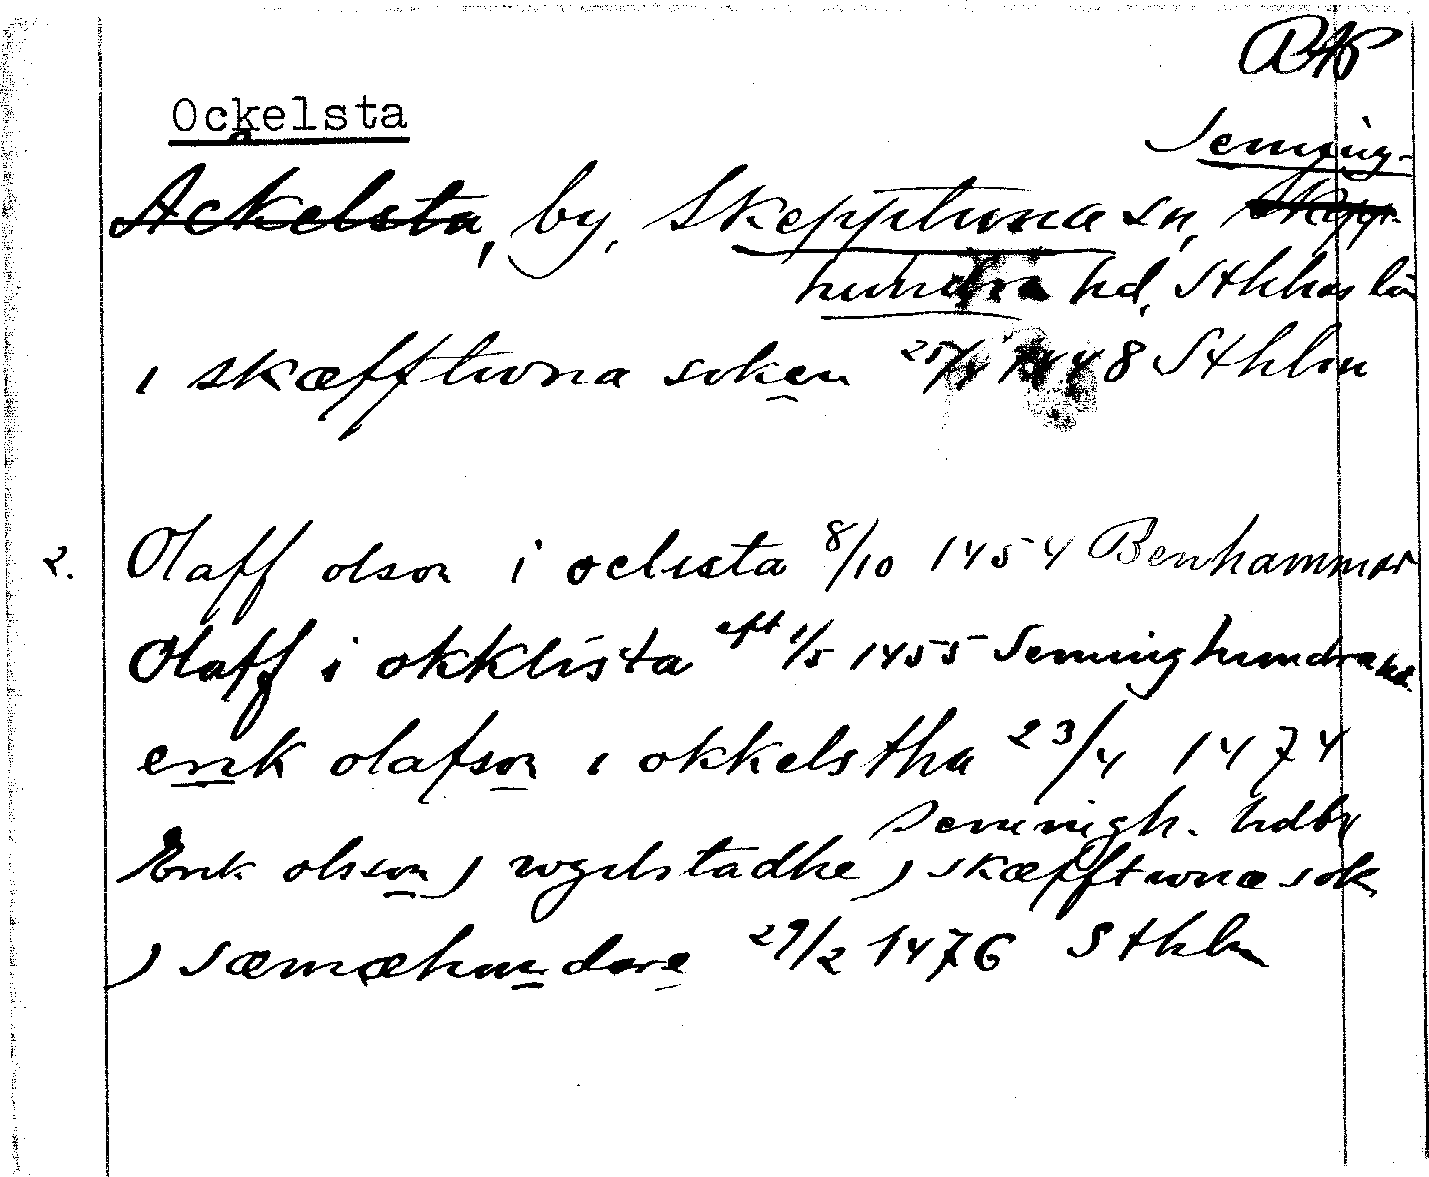 RAP
Ockelsta
Seming-
Ackelsta, by, Skepptuna sn,
hundra hd, Sthlms län
i skæfftwna soken 25/1 1448 Sthlm
2. Olaff olson i oclista 8/10 1454 Benhammar
Olaff i okklista eft 1/5 1455 Seminghundra hd.
erik olafson i okkelstha 23/4 1474
Seminigh. hdby
Erik olson j wgilstadhe j skæfftwnæ sok
j sæmæhundare 29/2 1476 Sthlm